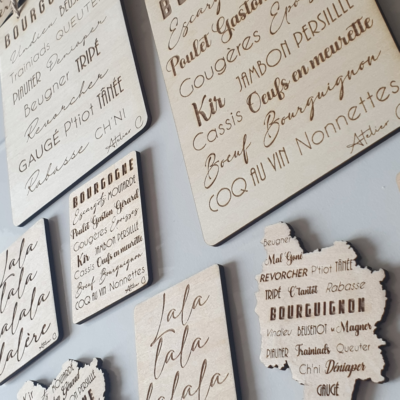 BOURG
Vindieu BEUSENOT
Trainiads QUEUTER
PIAUNER Déniaper
Beugner TRIPÉ
Revorcher
GAUGÉ P'tiot TÂNÉE
Rabasse CH'NI
Atelier C
Escargots
Poulet Gaston Gérard
Gougères Époisses
Kir JAMBON PERSILLÉ
Cassis Oeufs en meurette
Boeuf Bourguignon
COQ AU VIN Nonnettes
Atelier C
BOURGOGNE
Escargots MOUTARDE
Poulet Gaston Gérard
Gougères Époisses
Kir JAMBON PERSILLÉ
Cassis Oeufs en meurette
Boeuf Bourguignon
COQ AU VIN Nonnettes
Lala
lala
lala
lalère
Lala
lala
lala
Beugner
Mal Goné
REVORCHER P'tiot TÂNÉE
TRIPÉ Rabasse
BOURGUIGNON
Vindieu BEUSENOT Magner
PIAUNER Trainiads Queuter
Ch'ni Déniaper
GAUGÉ